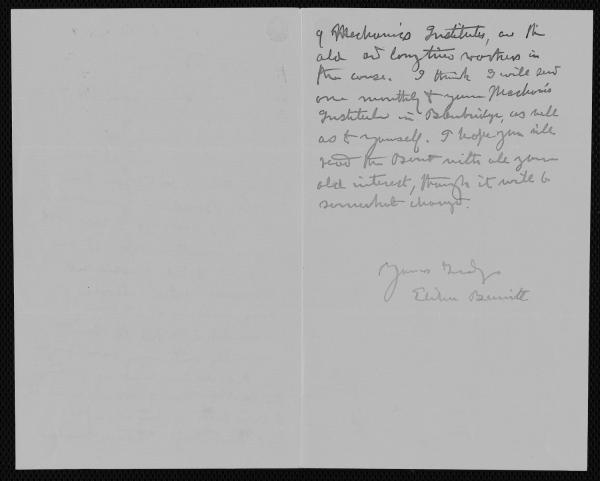 of Mechanics Institutes, are the
old and long time workers in
the cause. I think I will send
one monthly to your Mechanics
Institute in Banbridge, as well
as to yourself. I hope you will
read the Bond with all your
old interest, though it will be
somewhat changed.
Yours Truly
Elihu Burritt